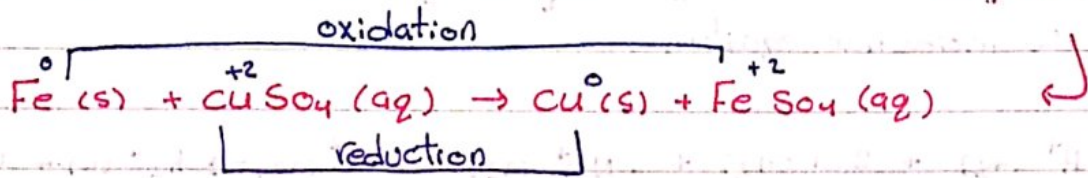 oxidation
0 +2 0 +2
Fe (s) + CuSO4 (aq) → Cu (s) + FeSO4 (aq)
reduction